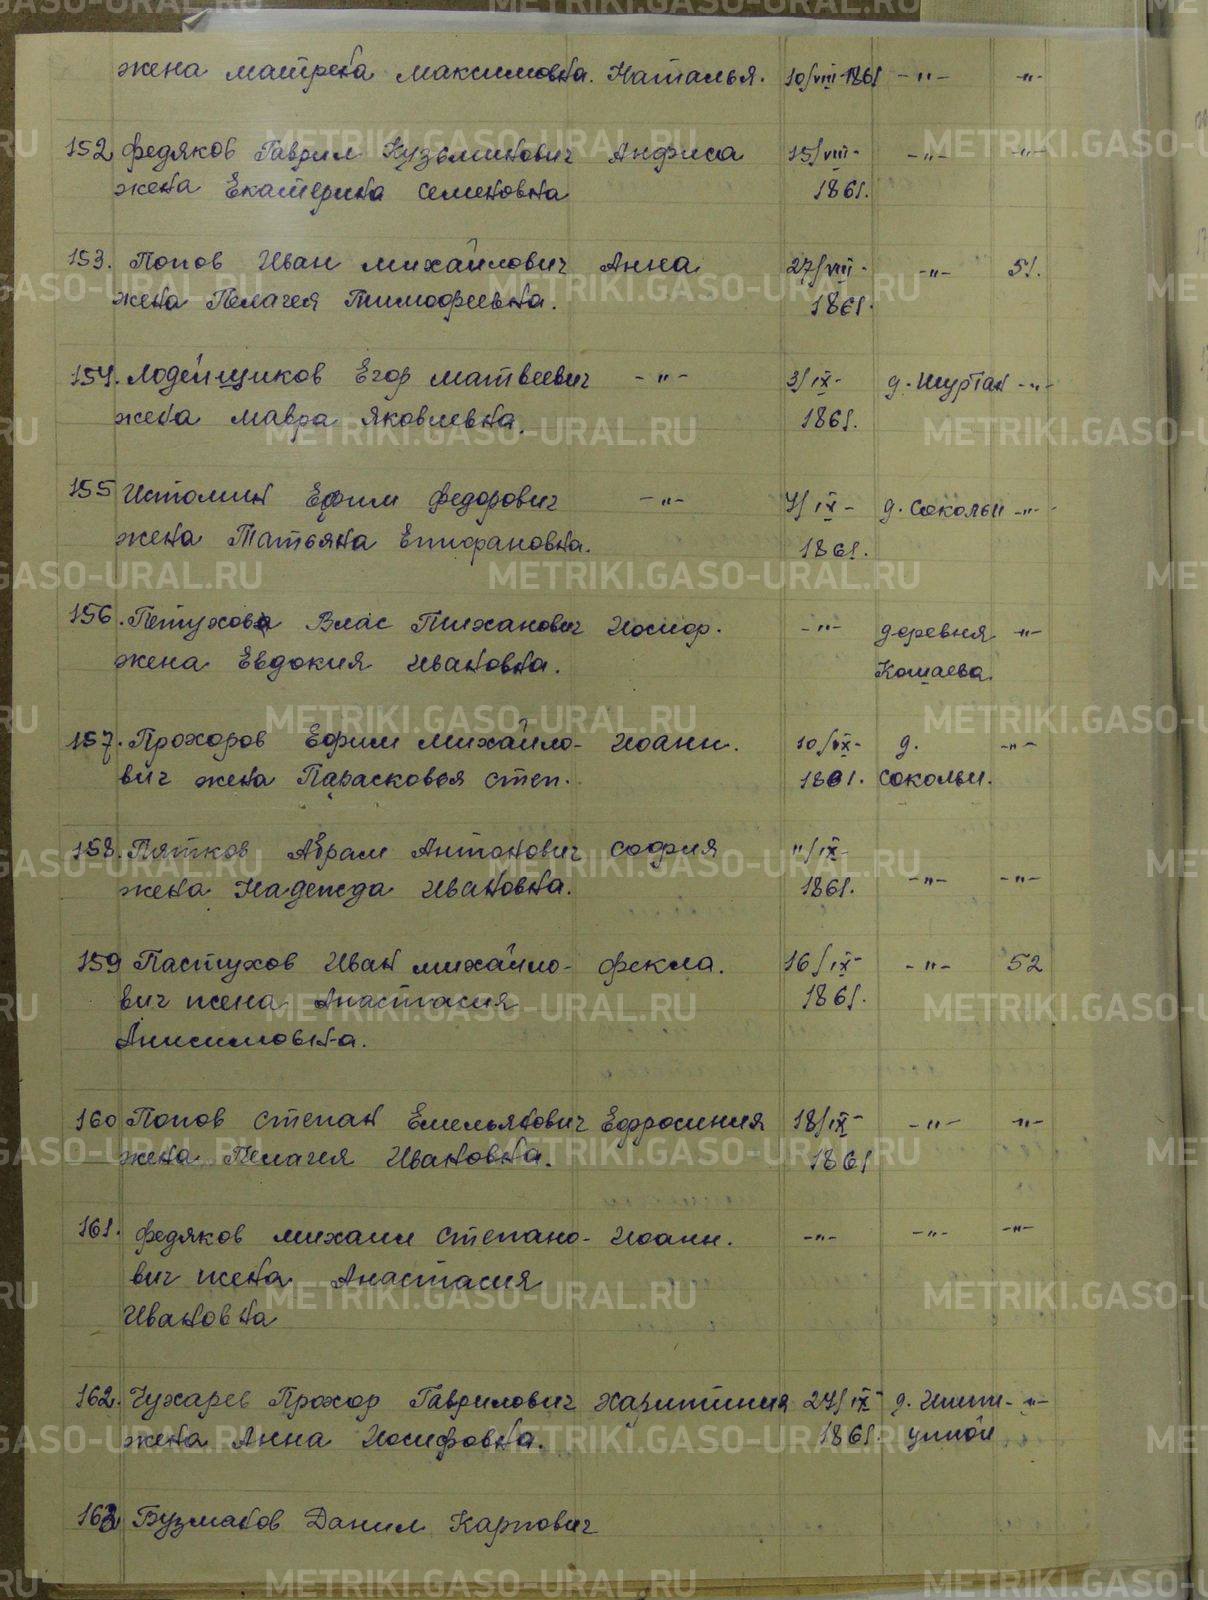 жена Матрена Максимовна. Наталья. 10/VIII-1861 -"- -"-
152 Федяков Гаврил Кузьминович Анфиса 15/VIII- -"- -"-
жена Екатерина Семеновна 1861.
153. Попов Иван Михайлович Анна 27/VIII- -"- 51.
жена Пелагея Тимофеевна. 1861.
154. Лодейщиков Егор Матвеевич -"- 3/IX- д. Шуртан -"-
жена Мавра Яковлевна. 1861.
155 Истомин Ефим Федорович -"- 7/IX- д. Соколы -"-
жена Татьяна Епифановна. 1861.
156. Петухов Влас Тиханович Иосиф. -"- деревня -"-
жена Евдокия Ивановна. Кошаева.
157. Прохоров Ефим Михайло- Иоанн. 10/IX- д. -"-
вич жена Парасковья Степ. 1861. Соколы.
158. Пятков Абрам Антонович София 11/IX-
жена Надежда Ивановна. 1861. -"- -"-
159 Пастухов Иван Михайло- Фекла. 16/IX- -"- 52
вич жена Анастасия 1861.
Анисимовна.
160 Попов Степан Емельянович Ефросиния 18/IX- -"- -"-
жена Пелагея Ивановна. 1861
161. Федяков Михаил Степано- Иоанн. -"- -"- -"-
вич жена Анастасия
Ивановна
162. Чухарев Прохор Гаврилович Харитиния 27/IX- -"-
жена Анна Иосифовна. 1861.
163 Бузмаков Данил Карпович
METRIKI.GASO-URAL.RU